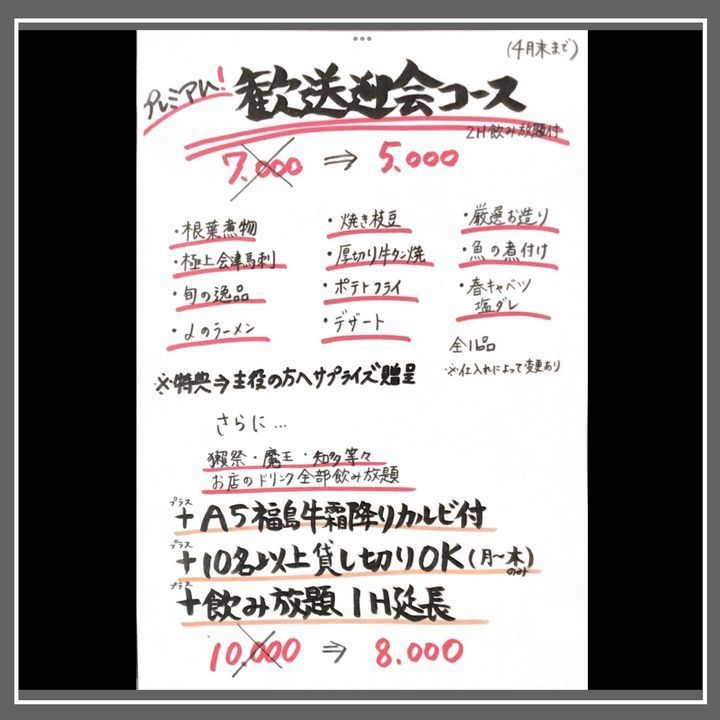 (4月末まで)
プレミアム!
歓送迎会コース
2H飲み放題付
7.000 ⇒ 5.000
・根菜煮物
・極上会津馬刺
・旬の逸品
・〆のラーメン
・焼き枝豆
・厚切り牛タン焼
・ポテトフライ
・デザート
・厳選お造り
・魚の煮付け
・春キャベツ
塩ダレ
全11品
※仕入れによって変更あり
※特典⇒主役の方へサプライズ贈呈
さらに…
獺祭・魔王・知多等々
お店のドリンク全部飲み放題
プラス
+A5福島牛霜降りカルビ付
プラス
+10名以上貸し切りOK(月~木)
のみ
プラス
+飲み放題1H延長
10.000 ⇒ 8.000